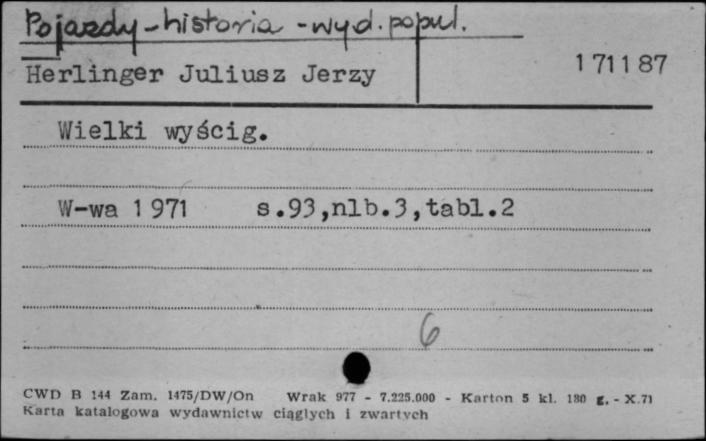 Pojazdy - historia - wyd. popul.
Herlinger Juliusz Jerzy 171187
Wielki wyścig.
W-wa 1971 s.93,nlb.3,tabl.2
6
CWD B 144 Zam. 1475/DW/On Wrak 977 - 7.225.000 - Karton 5 kl. 180 g. - X.71
Karta katalogowa wydawnictw ciągłych i zwartych